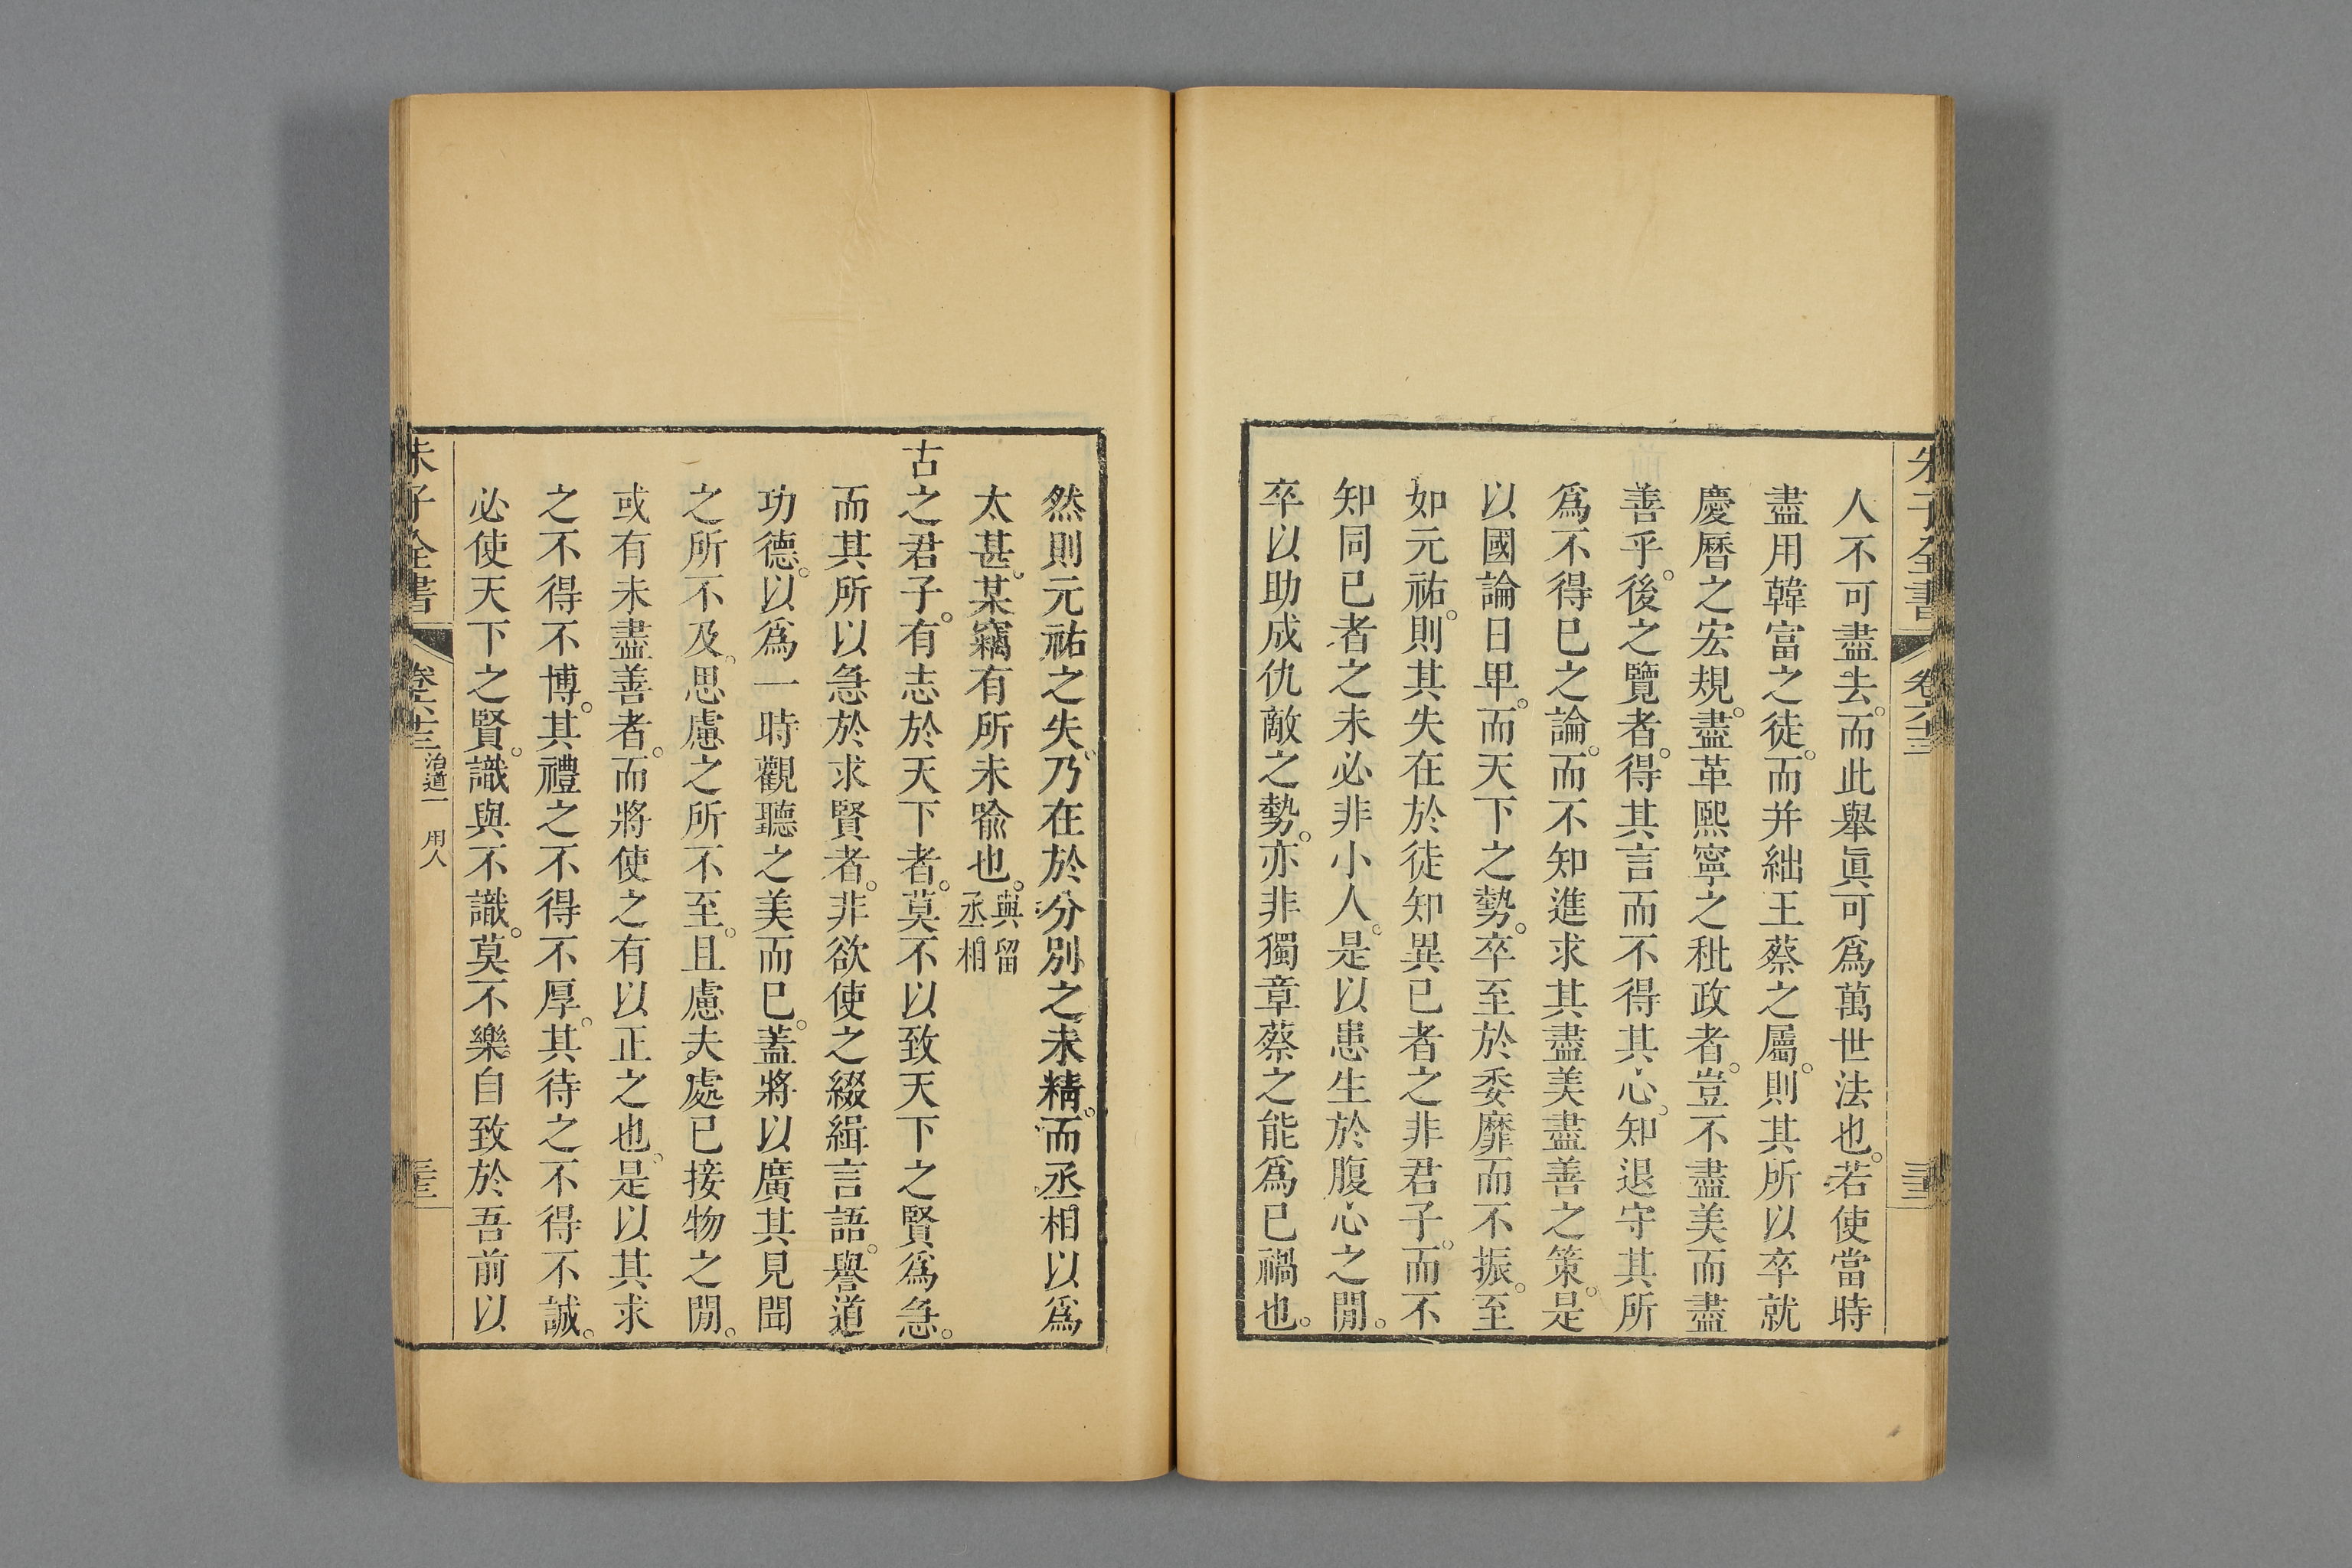 朱子全書 卷六十三
人不可盡去。而此舉眞可爲萬世法也。若使當時
盡用韓富之徒。而并絀王蔡之屬。則其所以卒就
慶曆之宏規。盡革熙寧之秕政者。豈不盡美而盡
善乎。後之覽者。得其言而不得其心。知退守其所
爲不得已之論。而不知進求其盡美盡善之策。是
以國論日卑。而天下之勢。卒至於委靡而不振。至
如元祐。則其失在於徒知異已者之非君子。而不
知同已者之未必非小人。是以患生於腹心之閒。
卒以助成仇敵之勢。亦非獨章蔡之能爲已禍也。
然則元祐之失。乃在於分別之未精。而丞相以爲
太甚。某竊有所未喩也。與留丞相
古之君子。有志於天下者。莫不以致天下之賢爲急。
而其所以急於求賢者。非欲使之綴緝言語。譽道
功德。以爲一時觀聽之美而已。蓋將以廣其見聞
之所不及。思慮之所不至。且慮夫處已接物之閒。
或有未盡善者。而將使之有以正之也。是以其求
之不得不博。其禮之不得不厚。其待之不得不誠。
必使天下之賢。識與不識。莫不樂自致於吾前以
朱子全書 卷六十三 治道一 用人